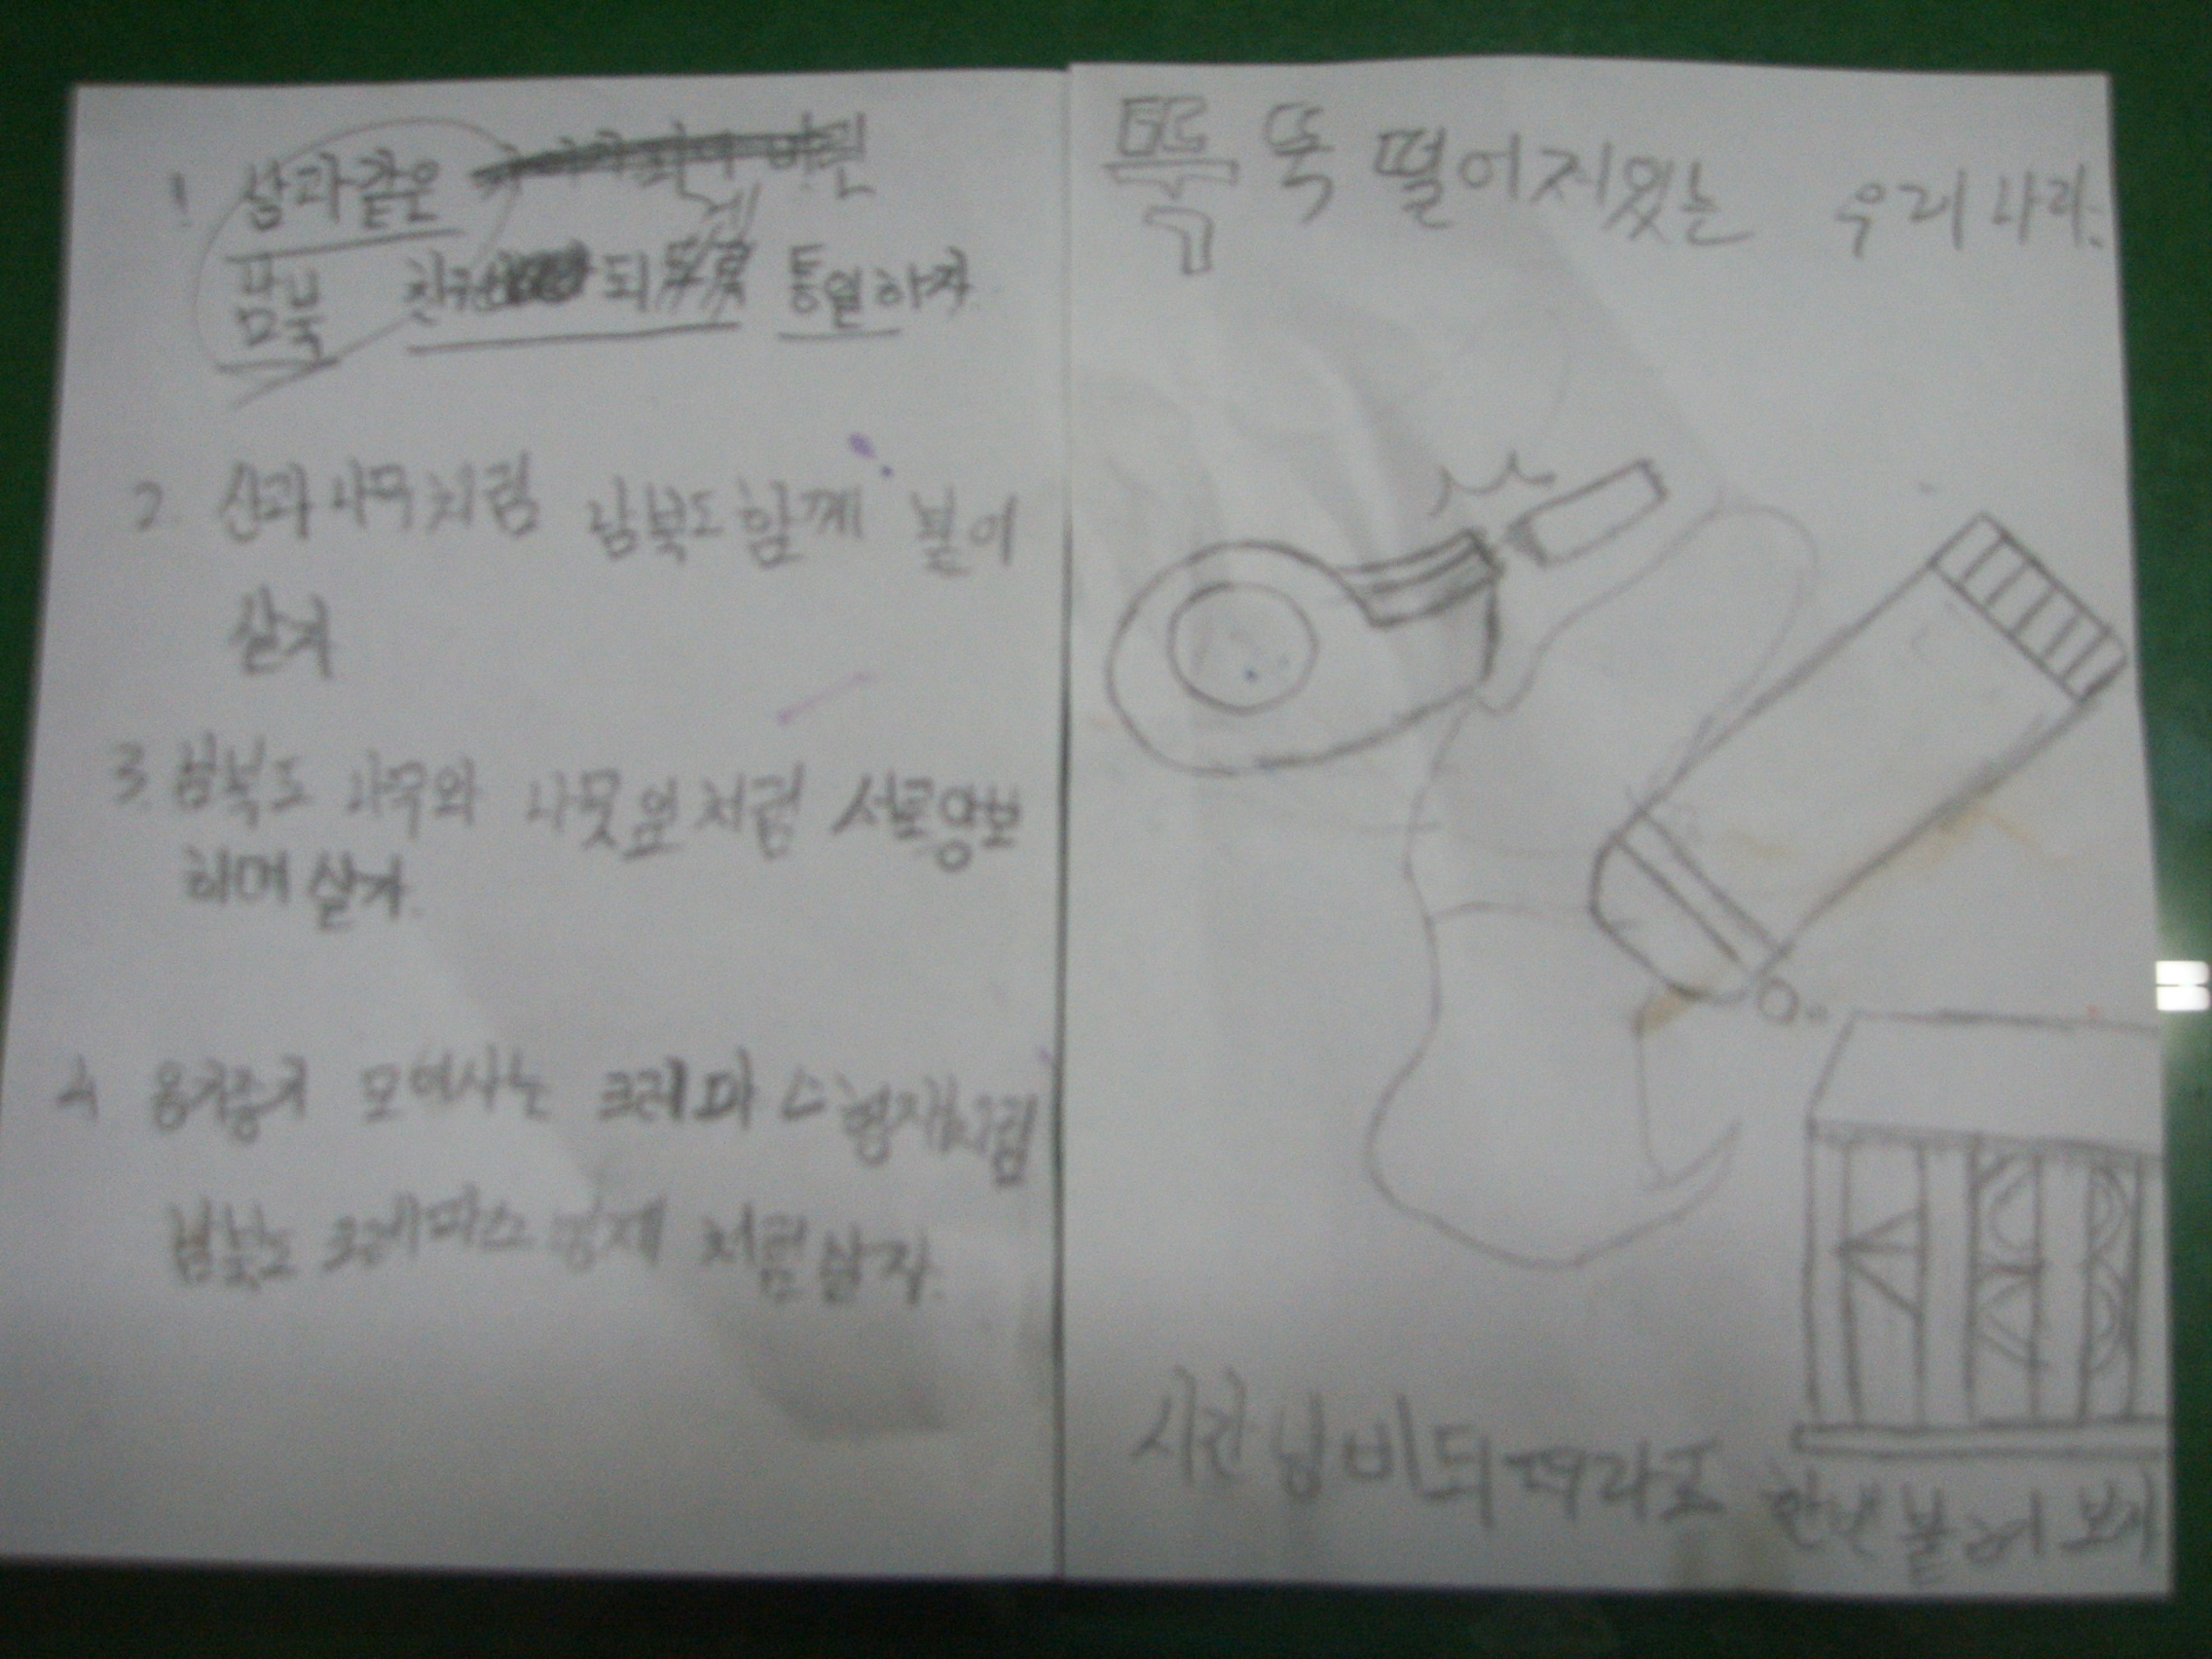 1 삼과같은
남북 친구 되 통일하자
2. 산과 나무처럼 남북도 함께 붙어
살자
3. 남북도 나무와 나뭇잎처럼 서로양보
하며 살자.
4 옹기종기 모여사는 크레파스형제처럼
남북도 크레파스 형제 처럼살자.
뚝 뚝 떨어지있는 우리 나라.
시간 낭비되더라도 한번